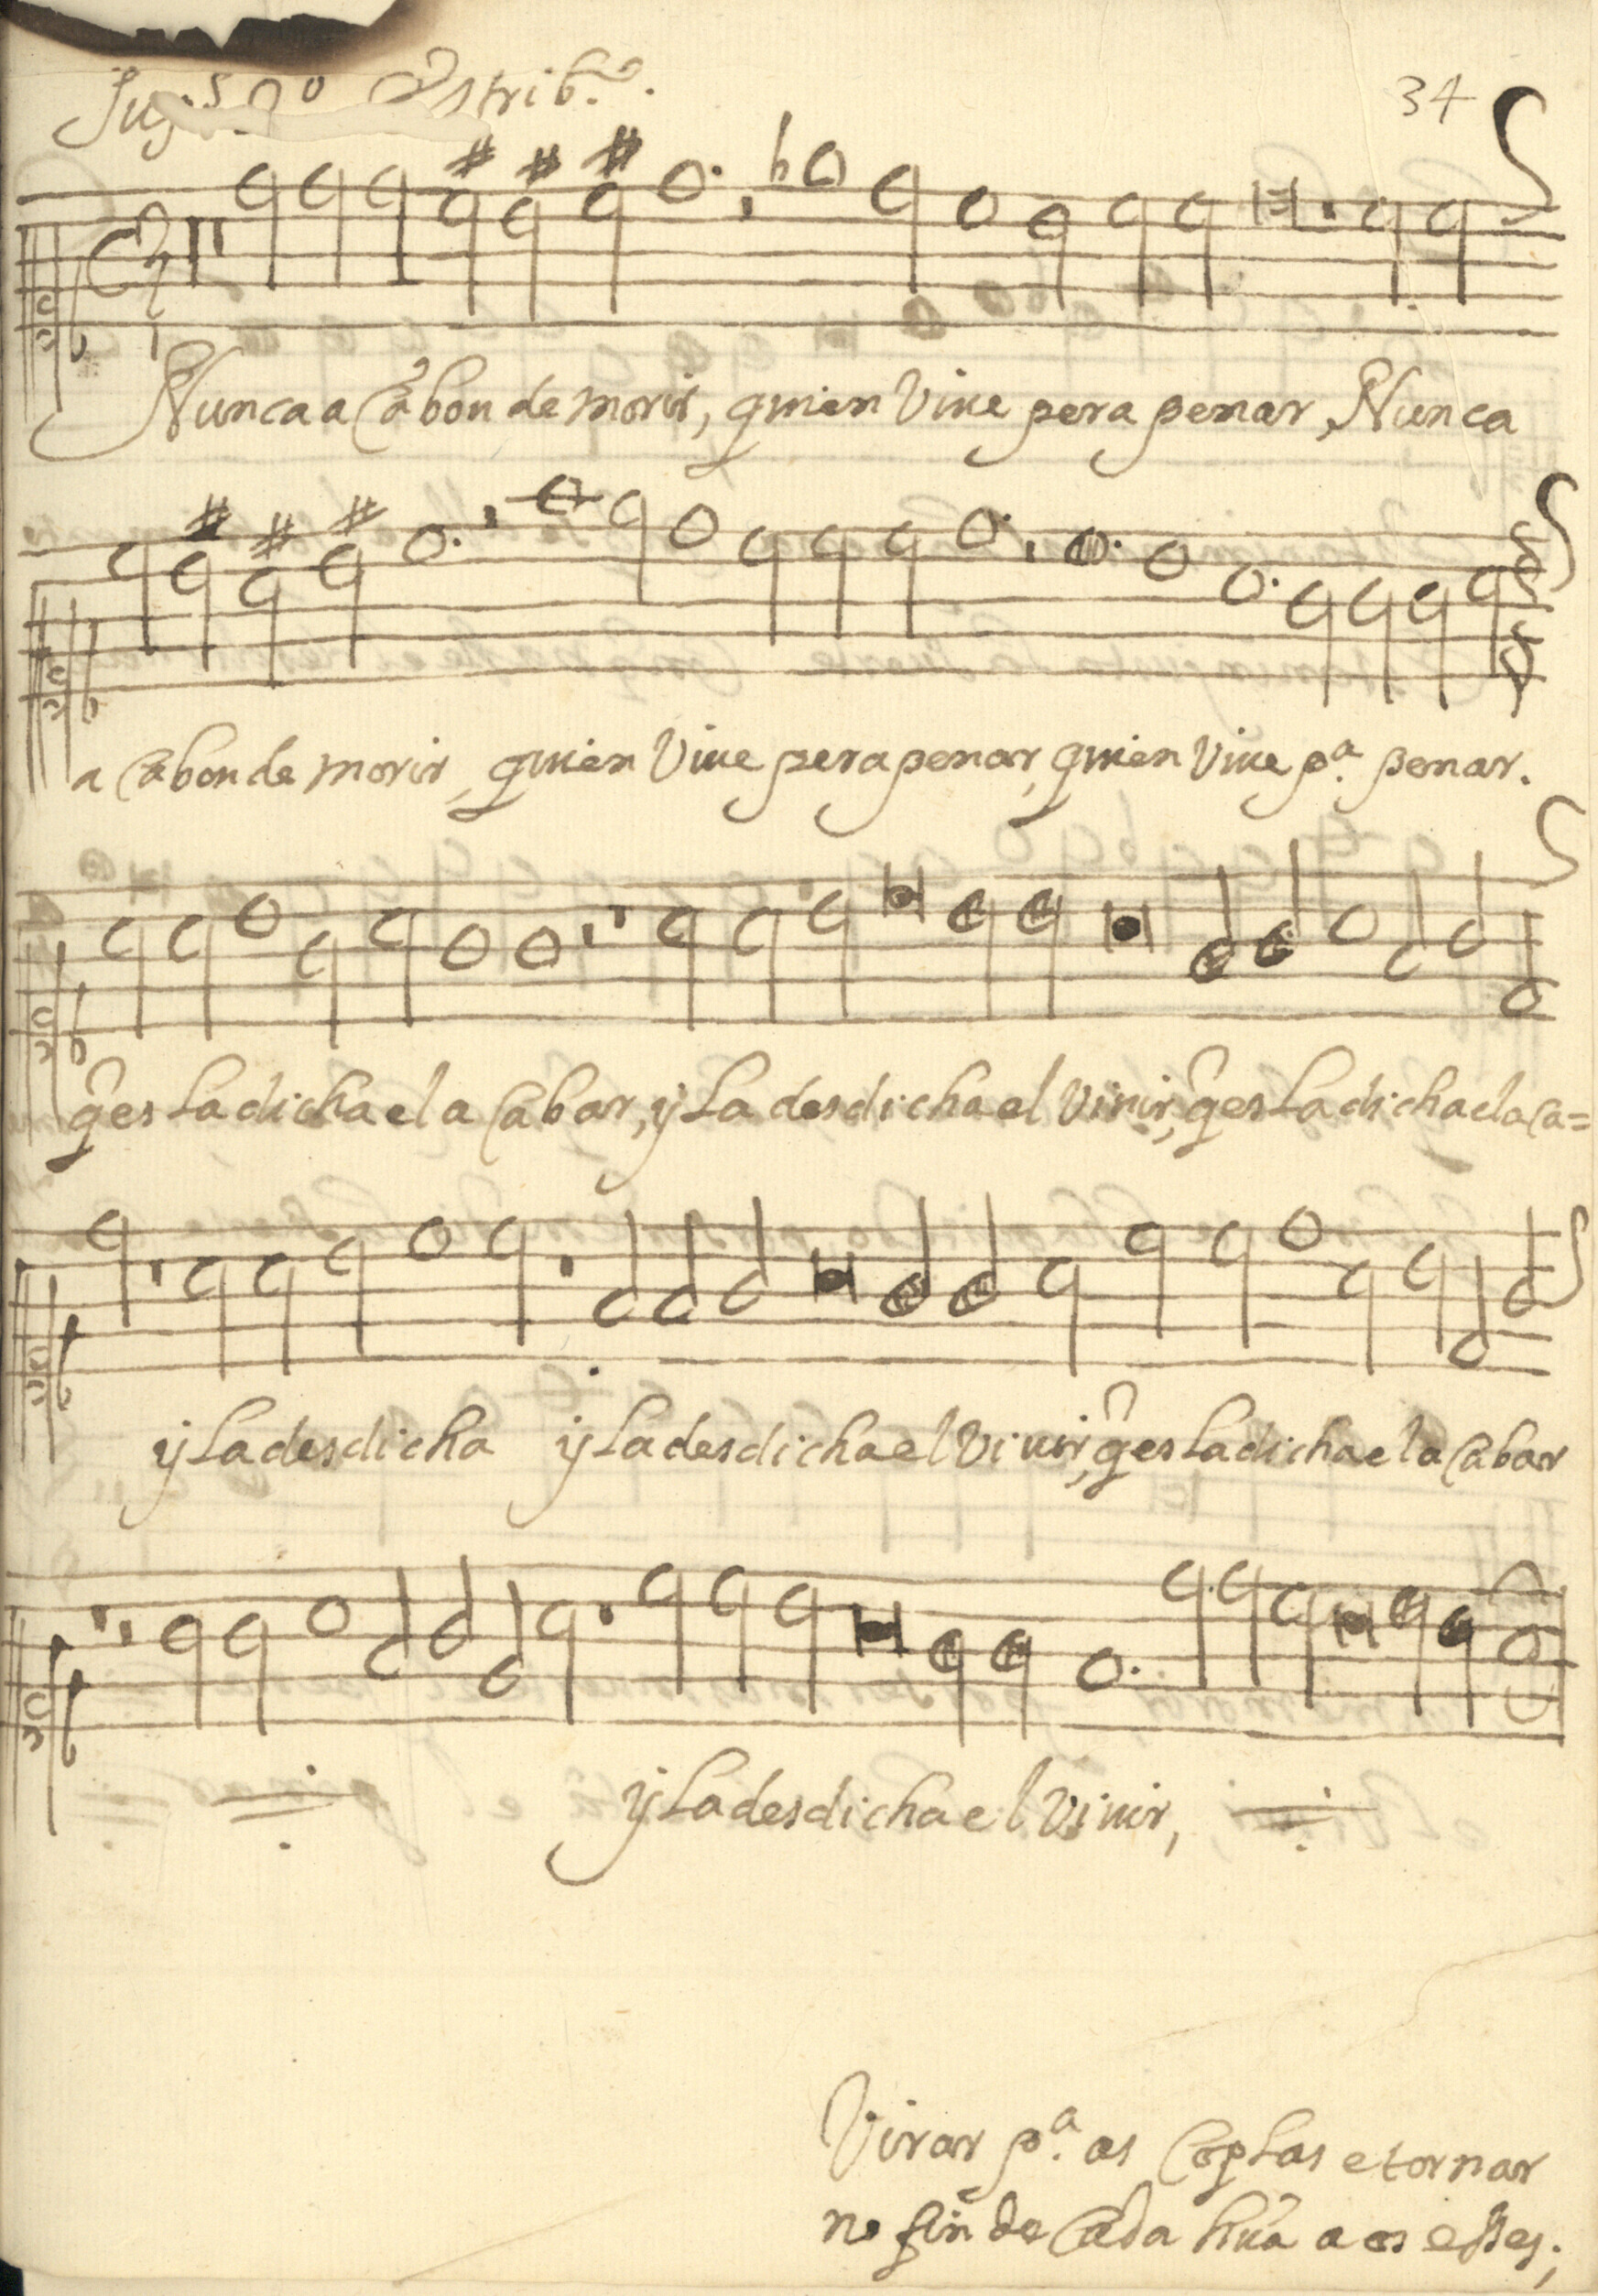 2º Estribº.
34
Nunca acabon de morir, quien Viue pera penar, Nunca
acabon de morir, quien Viue pera penar, quien Viue pª. penar.
q̃ es La dicha el acabar, y La desdicha el Viuir, q̃ es La dicha el aca=
y La desdicha y La desdicha el Viuir, q̃ es La dicha el acabar
y La desdicha el Viuir,
Virar pª. as Coplas e tornar
no fin de Cada hũa a os esses;